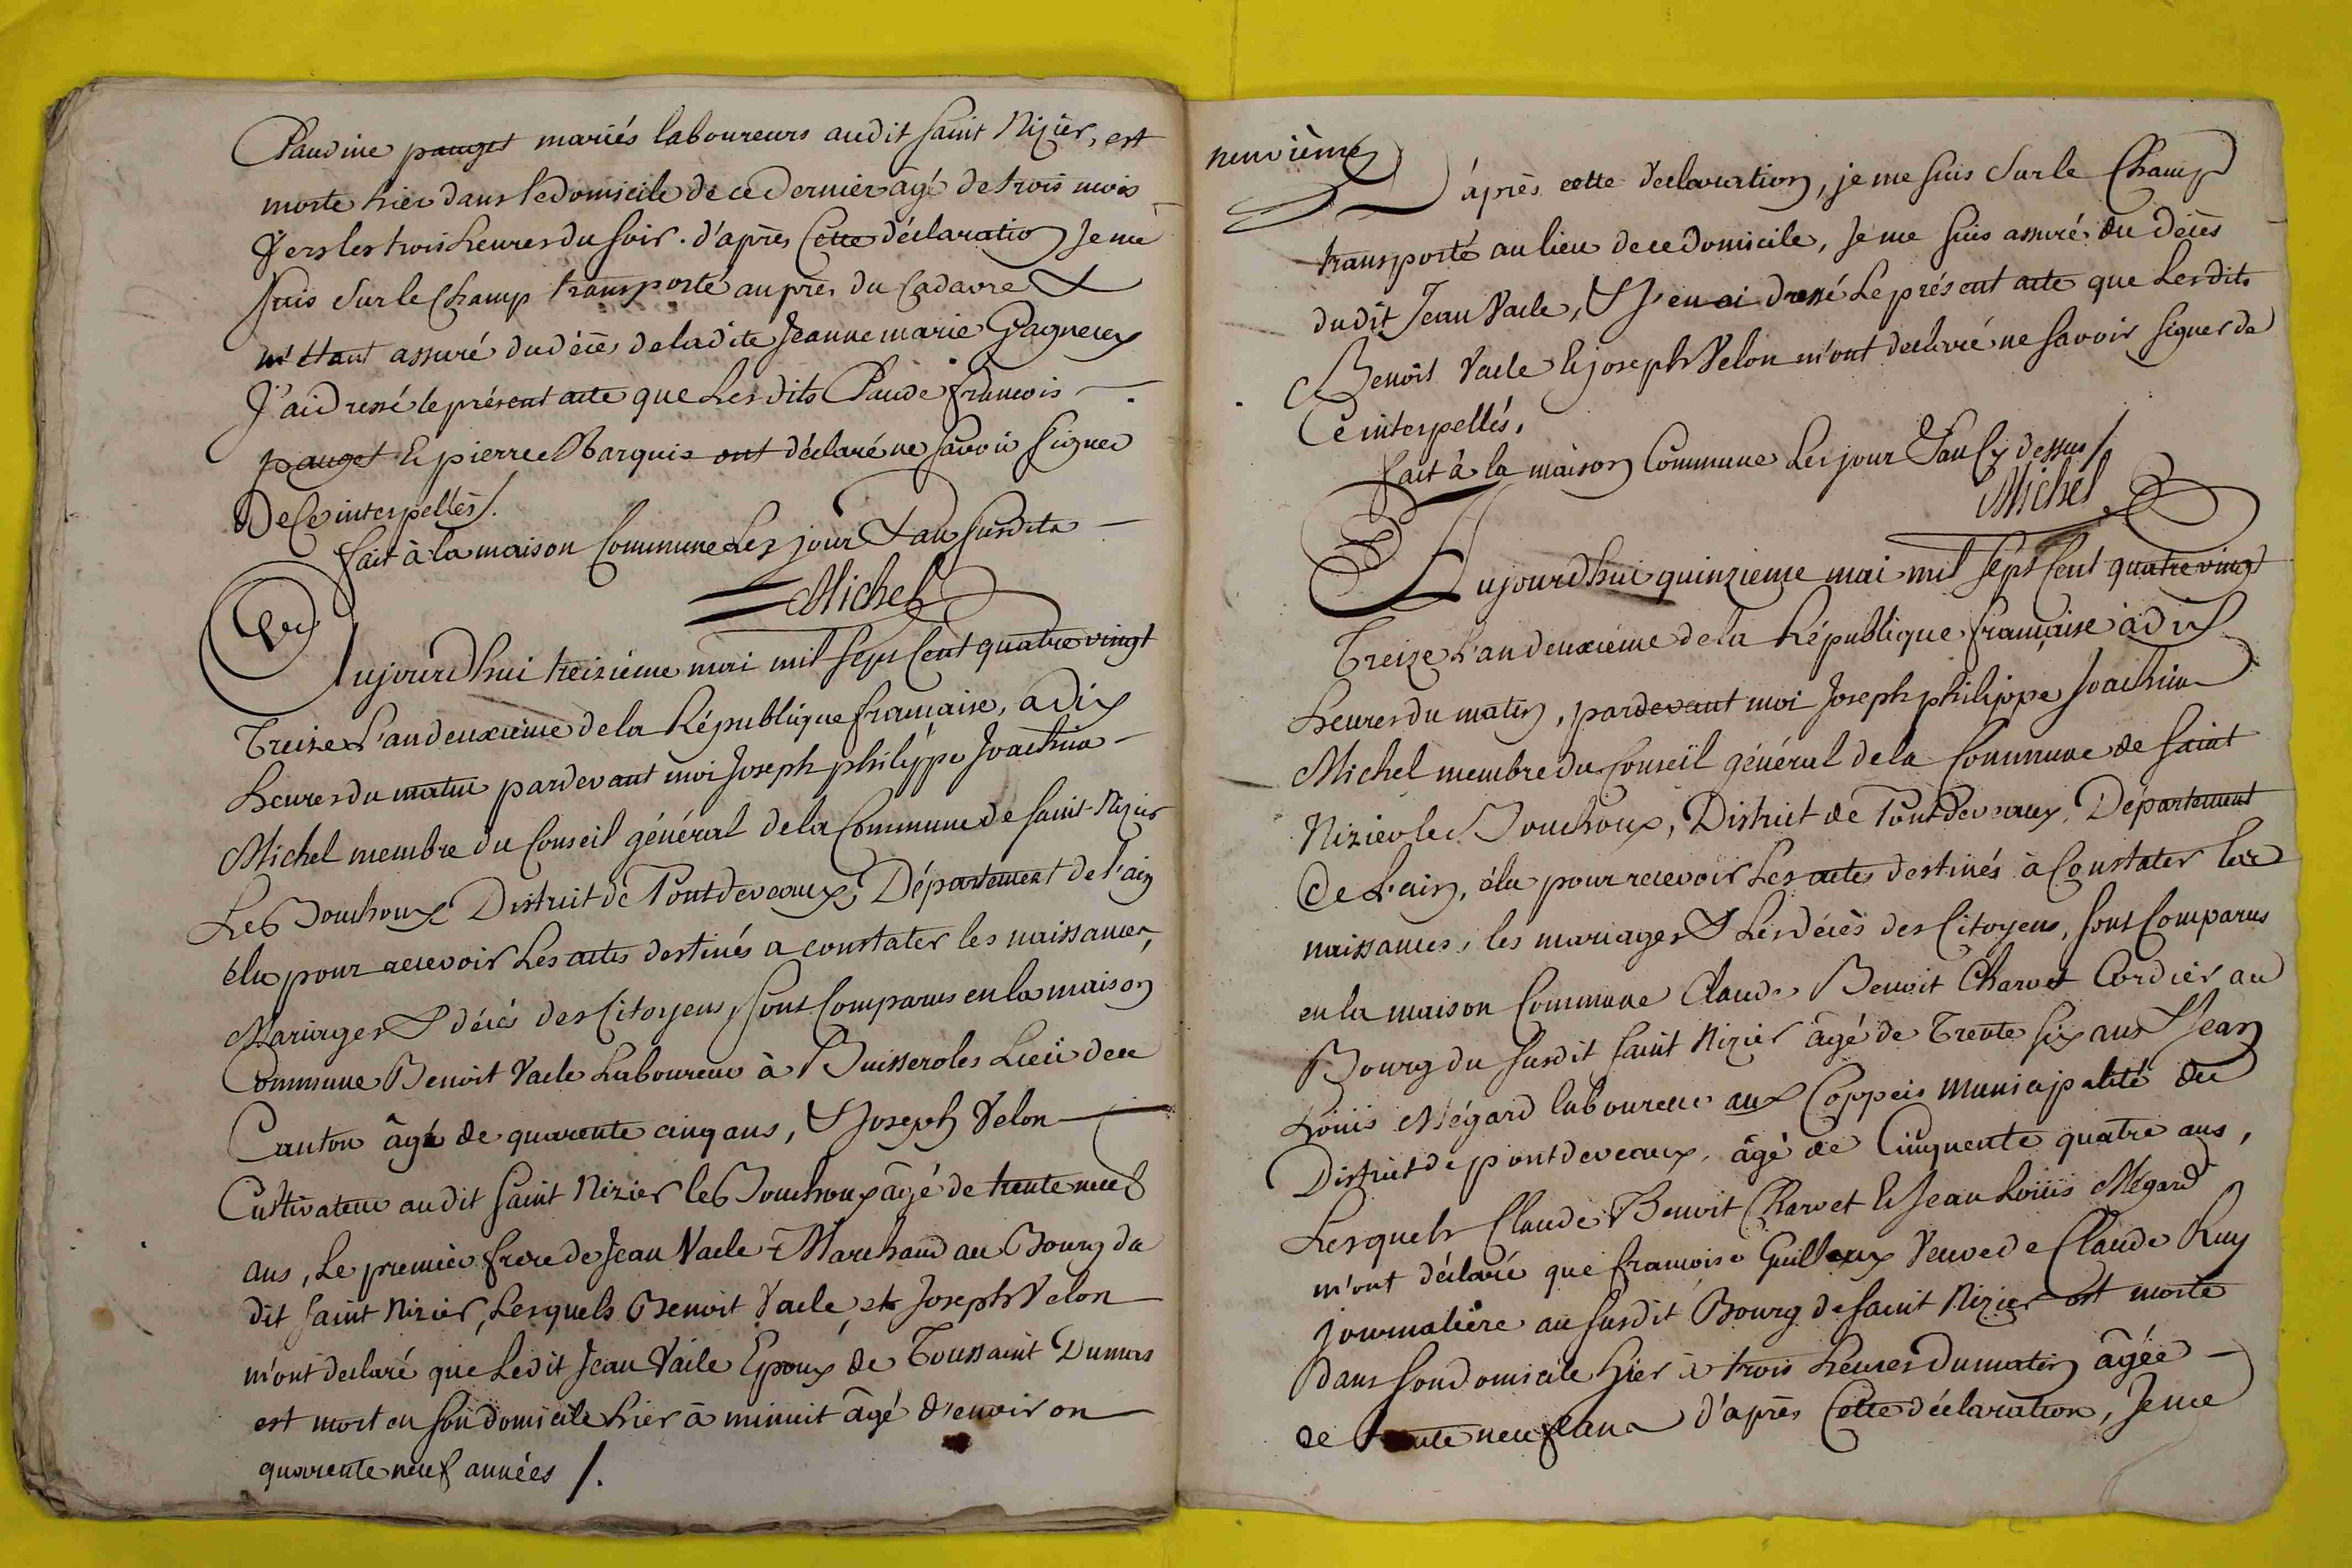 Claudine pauget mariés laboureurs audit saint Nizier, est
morte hier dans le domicile de ce dernier âgé de trois mois
vers les trois heures du soir. d'après Cette déclaration Je me
suis sur le Champ transporté auprès du Cadavre &
m'étant assuré du décès de ladite Jeanne marie Gagneux
J'ai dressé le présent acte que Lesdits Claude françois
pauget & pierre Marquis ont déclaré ne savoir signer
De Ce interpellés/.
fait à la maison Commune Les jour & an susdits
Michel
Aujourd'hui treizieme mai mil sept Cent quatre vingt
Treize L'an deuxieme de la République française, a dix
heures du matin pardevant moi Joseph philippe Joachim
Michel membre du Conseil général de la Commune de saint Nizier
Le Bouchoux District de Pontdevaux, Département de l'ain
élu pour recevoir Les actes destinés a constater les naissances,
Mariages & décés des Citoyens, sont Comparus en la maison
Commune Benoit Vacle Laboureur à Buisseroles Lieu de ce
Canton âgé de quarente cinq ans, & Joseph Velon
Cultivateur audit saint Nizier le Bouchoux âgé de trente neuf
ans, Le premier frere de Jean Vacle Marchand au Bourg du
dit saint Nizier, Lesquels Benoit Vacle, et Joseph Velon
m'ont declaré que Ledit Jean Vacle Epoux de Toussaint Dumas
est mort en son domicile hier à minuit âgé d'environ
quarente neuf années /.
neuvième
D'après cette declaration, je me suis sur le Champ
transporté au lieu de ce Domicile, Je me suis assuré du Décès
dudit Jean Vacle, & J'en ai dressé Le présent acte que Lesdits
Benoit Vacle & joseph Velon m'ont declaré ne savoir signer de
Ce interpellés.
fait à la maison Commune Les jour & an Cy dessus/
Michel
Aujourd'hui quinzieme mai mil sept Cent quatre vingt
Treize L'an deuxieme de la République française à dix
heures du matin, pardevant moi Joseph philippe Joachim
Michel membre du Conseil général de la Commune de saint
Nizier le Bouchoux, District de Pontdevaux, Département
De L'ain, élu pour recevoir Les actes destinés à Constater les
naissances, les mariages & Les décès des Citoyens, sont Comparus
en la maison Commune Claude Benoit Charvet Cordier au
Bourg du susdit saint Nizier âgé de Trente six ans & Jean
Loüis Mégard laboureur aux Coppeis municipalité du
District de pontdevaux, âgé de Cinquente quatre ans,
Lesquels Claude Benoit Charvet & Jean Loüis Mégard
m'ont déclaré que francoise Guilloux Veuve de Claude Ruy
journalière au susdit Bourg de saint Nizier est morte
Dans son domicile hier à trois heures du matin âgée
de trente neuf ans d'après Cette déclaration, Je me